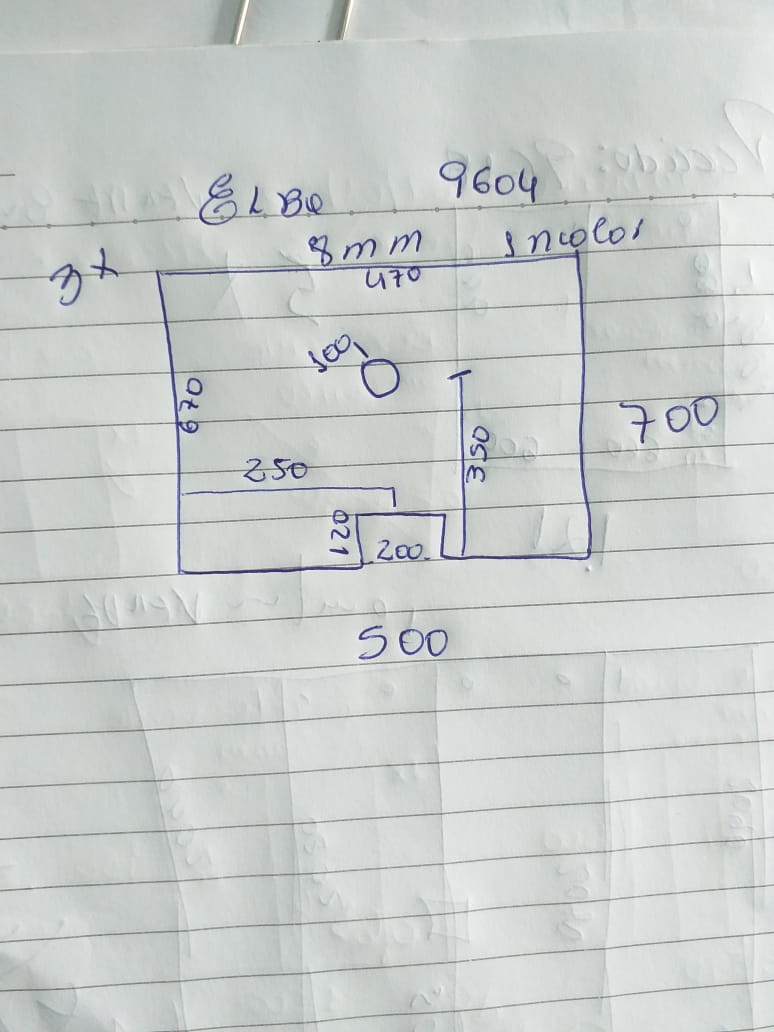 ELBO 9604
8mm Incolor
3x
470
100
670
700
250
350
120
200
500